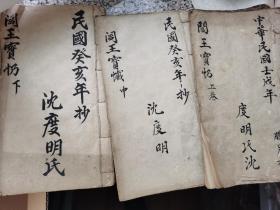 中華民國壬戌年
閻王寶忏上卷
度明氏沈
民國癸亥年抄
閻王寶懺中
沈度明
民國癸亥年抄
閻王寶忏下
沈度明氏